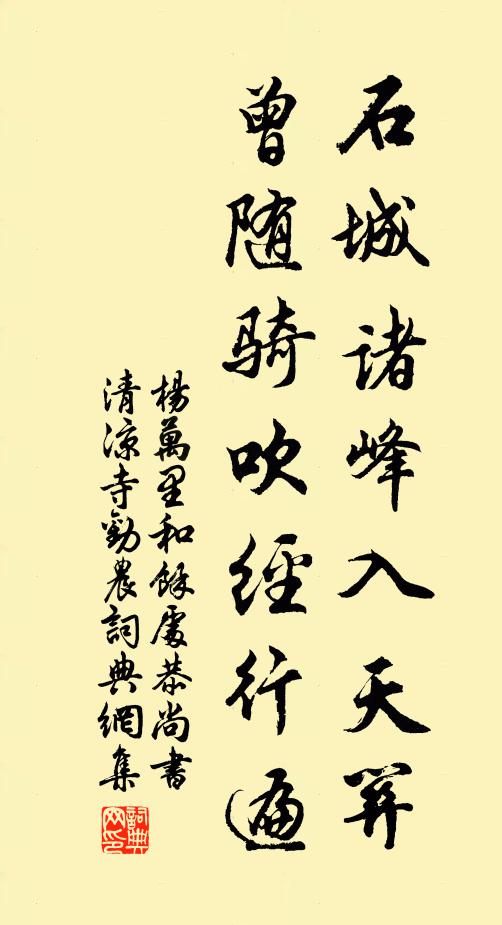 石城诸峰入天笄
曾随骑吹经行遍
楊萬里和餘處恭尚書
清涼寺勸農詞典網集
詞典
网印